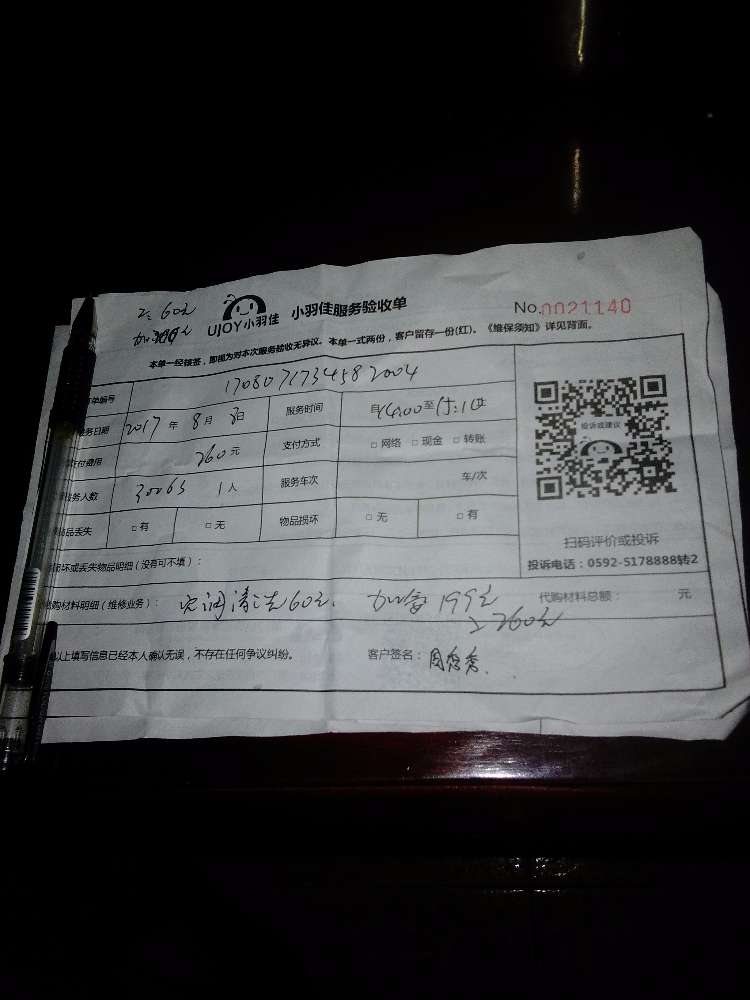 60元
UJOY小羽佳 小羽佳服务验收单 No.0021140
本单一经核签，即视为对本次服务验收无异议。本单一式两份，客户留存一份(红)。《维保须知》详见背面。
单编号 1708071734582004
务日期 2017年8月8日 服务时间 自14:00至15:10止
付费用 260元 支付方式 □网络 □现金 □转账
务人数 30063 1人 服务车次 车/次
品丢失 □有 □无 物品损坏 □无 □有
投诉或建议
扫码评价或投诉
投诉电话：0592-5178888转2
坏或丢失物品明细（没有可不填）：
购材料明细（维修业务）： 清洗60元. 加 199元 代购材料总额： 元
260元
以上填写信息已经本人确认无误，不存在任何争议纠纷。 客户签名：周秀秀